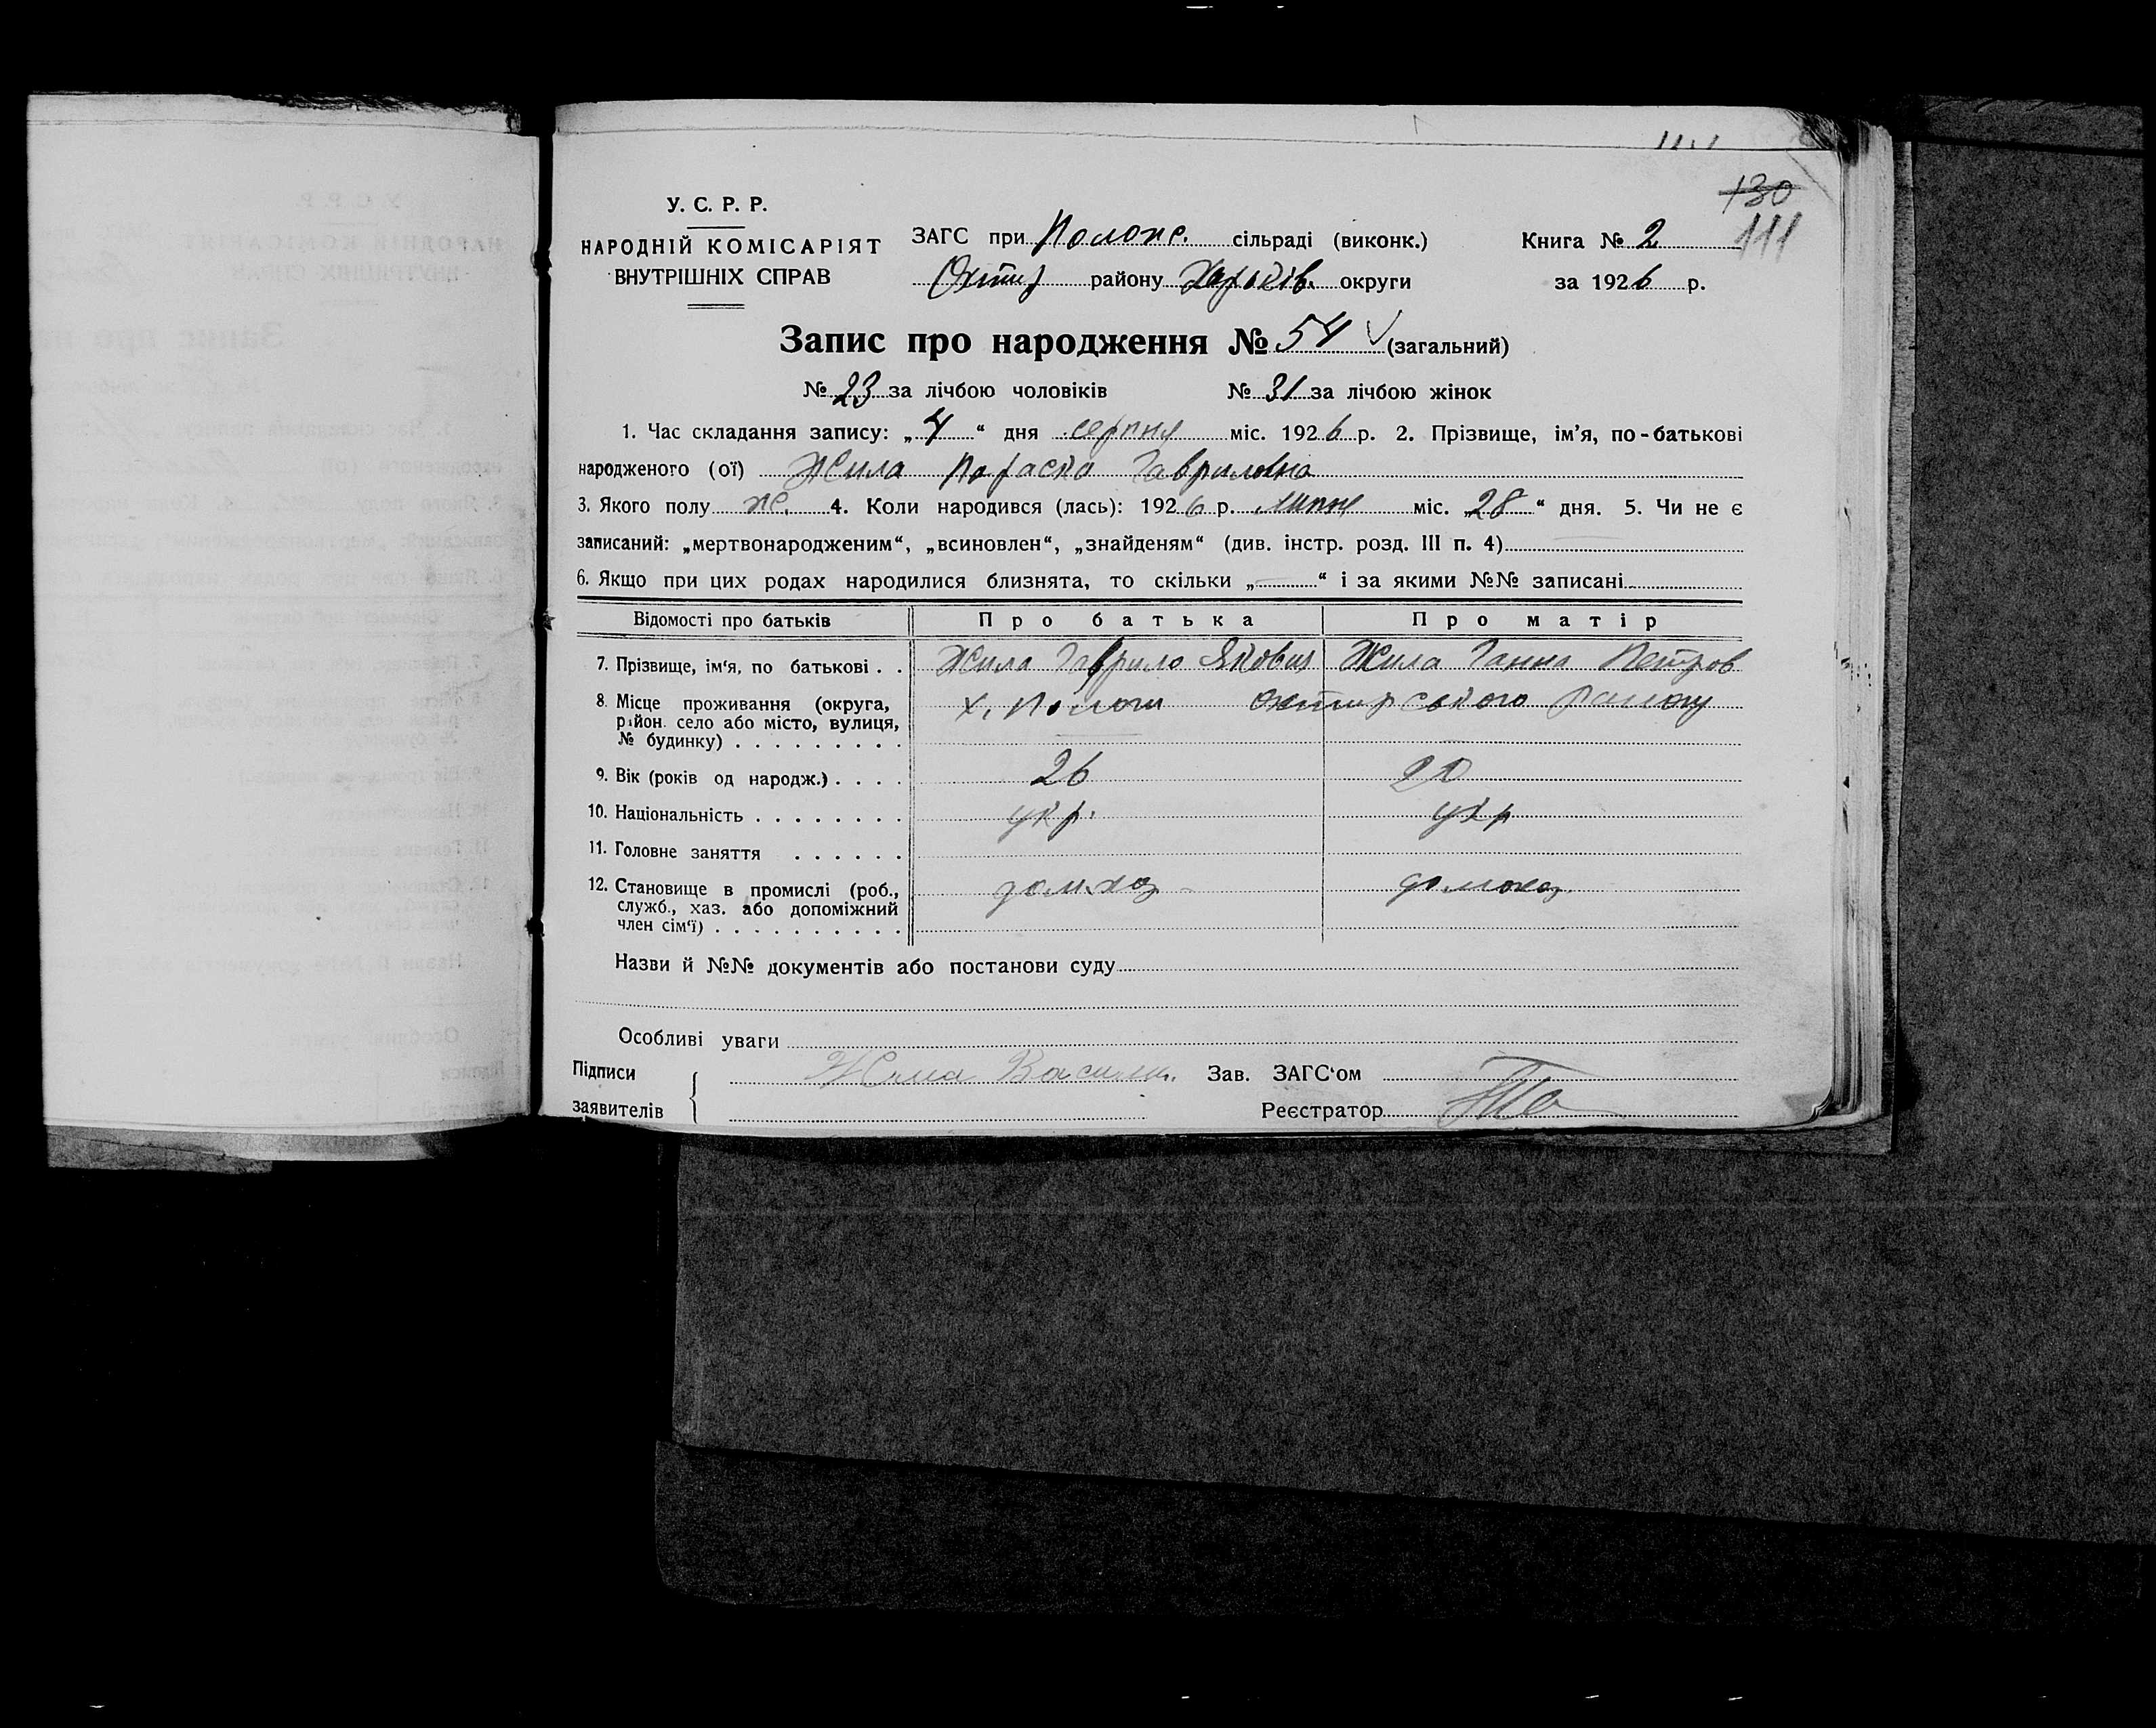 130
У. С. Р. Р.
НАРОДНІЙ КОМІСАРІЯТ
ВНУТРІШНІХ СПРАВ
ЗАГС при Полож. сільраді (виконк.)
Охтир району Харьків. округи
Книга № 2 111
за 1926 р.
Запис про народження № 54 (загальний)
№ 23 за лічбою чоловіків № 31 за лічбою жінок
1. Час складання запису: „4“ дня серпня міс. 1926 р. 2. Прізвище, ім'я, по-батькові
народженого (ої) Жила Параска Гавриловна
3. Якого полу ж. 4. Коли народився (лась): 1926 р. липня міс. „28“ дня. 5. Чи не є
записаний: „мертвонародженим“, „всиновлен“, „знайденям“ (див. інстр. розд. III п. 4)
6. Якщо при цих родах народилися близнята, то скільки „—“ і за якими №№ записані
Відомості про батьків Про батька Про матір
7. Прізвище, ім'я, по батькові . . Жила Гаврило Якович Жила Ганна Петров
8. Місце проживання (округа, х. Пологи Охтирського району
район. село або місто, вулиця,
№ будинку) . . . . . . . . .
9. Вік (років од народж.) . . . . 26 20
10. Національність . . . . . . . . укр. укр
11. Головне заняття . . . . . .
12. Становище в промислі (роб., дом.хаз домохаз.
служб., хаз. або допоміжний
член сім'ї) . . . . . . . . . .
Назви й №№ документів або постанови суду
Особливі уваги
Підписи Жила Зав. ЗАГС'ом
заявителів Реєстратор